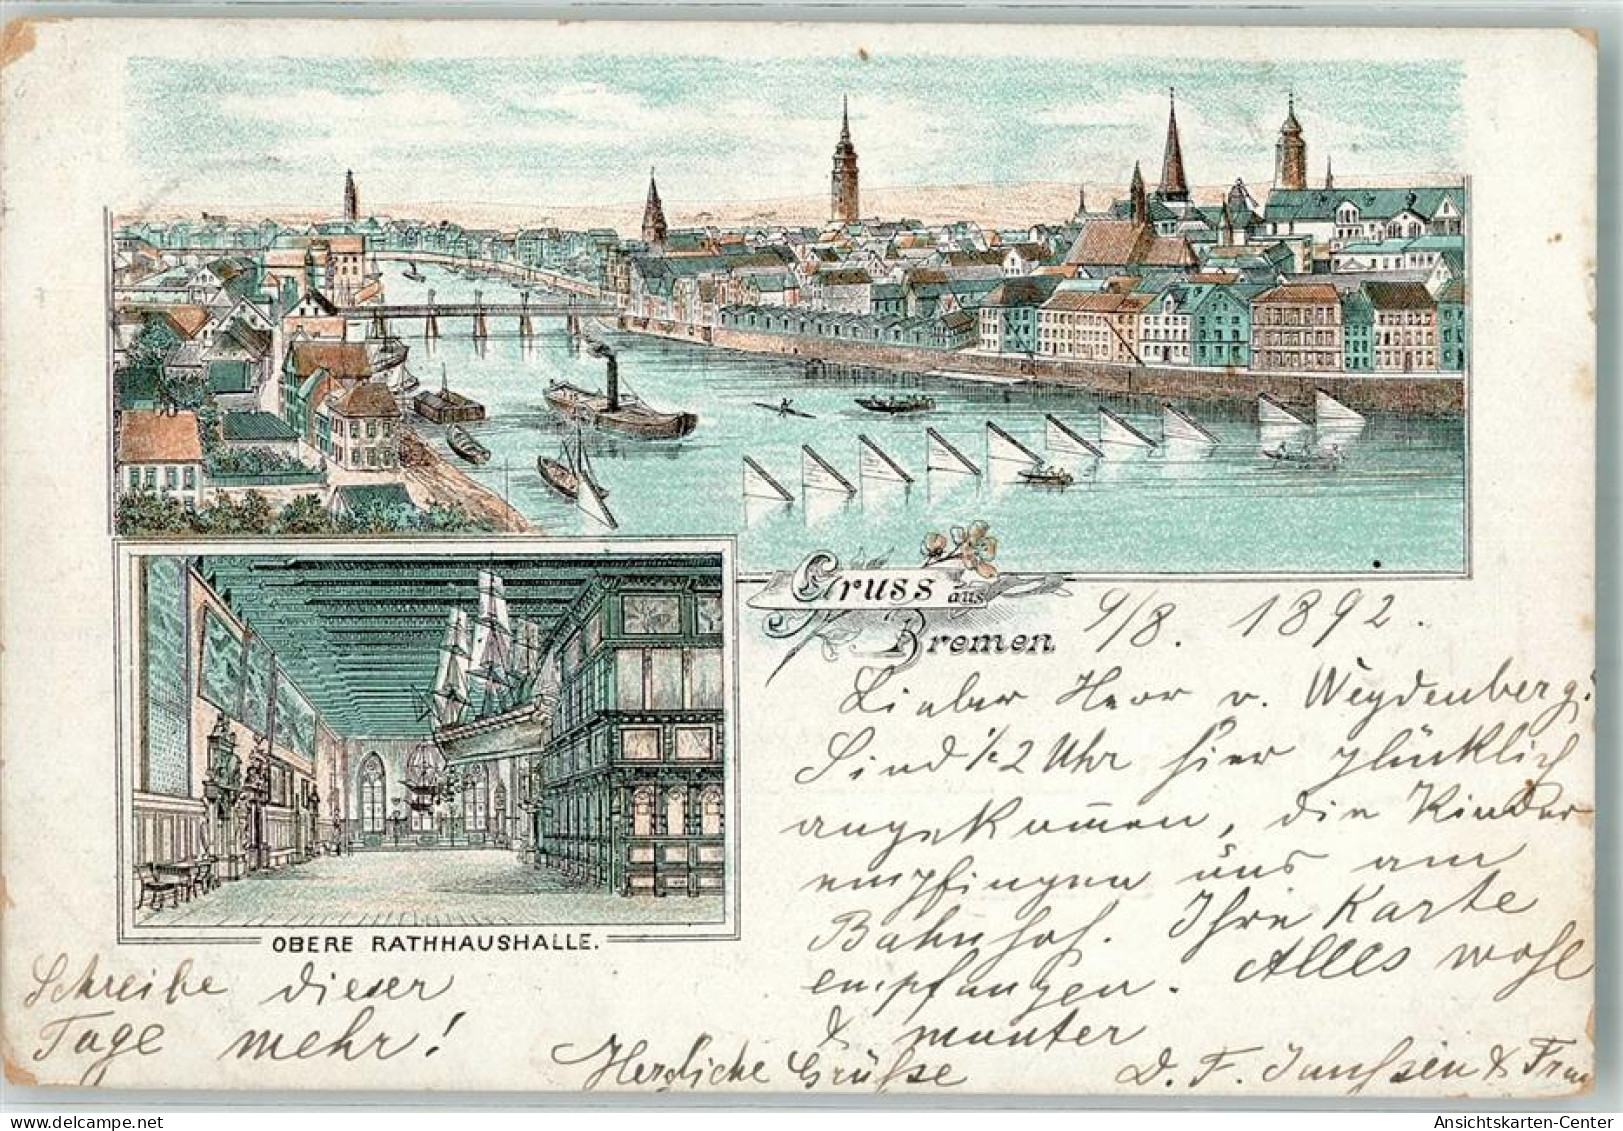 Gruss aus
Bremen
9/8. 1892.
Lieber Herr v. Weydenberg!
Sind ½2 Uhr hier glücklich
angekommen, die Kinder
empfingen uns am
Bahnhof. Ihre Karte
empfangen. Alles wohl
& munter
OBERE RATHHAUSHALLE.
Schreibe dieser
Tage mehr!
Herzliche Grüße
D. F. Janssen & Frau
Ansichtskarten-Center